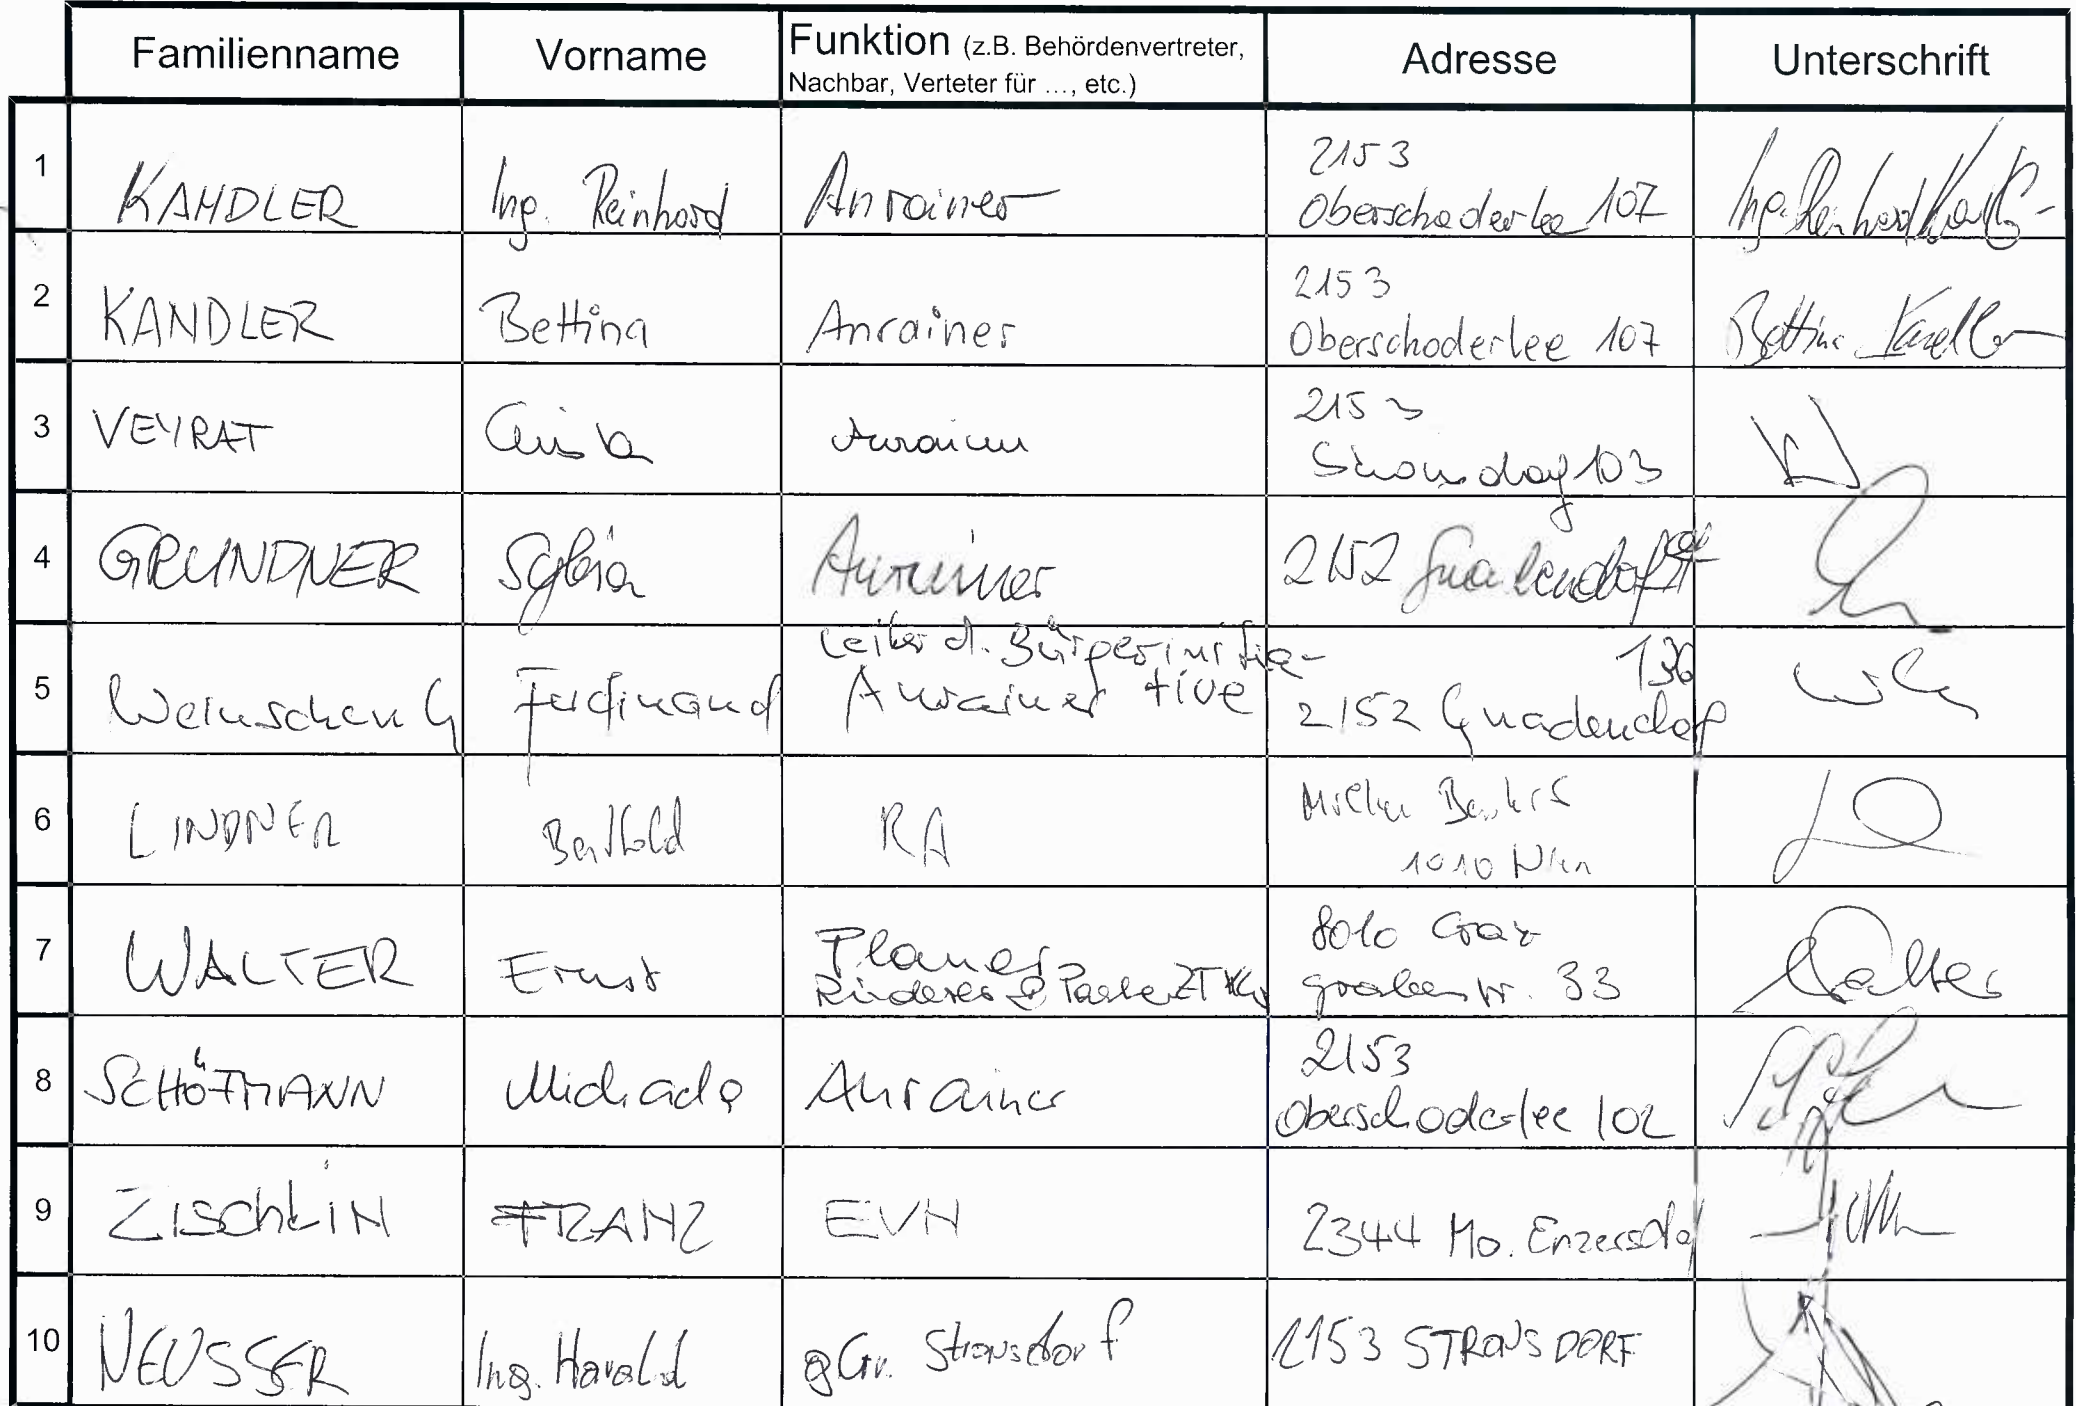 Familienname Vorname Funktion (z.B. Behördenvertreter, Nachbar, Verteter für ..., etc.) Adresse Unterschrift
1 KANDLER Ing. Reinhard Anrainer 2153 Oberschoderlee 107
2 KANDLER Bettina Anrainer 2153 Oberschoderlee 107 Bettina Kandler
3 VEYRAT Christa Anrainer 2153 103
4 GRUNDNER Sylvia Anrainer 2152 Gnadendorf
5 Ferdinand Leiter d. Bürgerinitia- Anrainer tive 136 2152 Gnadendorf
6 LINDNER Berthold RA 1010 Wien
7 WALTER Ernst Planer 8010 Graz Grabenstr. 33 Walter
8 Michaela Anrainer 2153 Oberschoderlee 102
9 ZISCHKIN FRANZ EVN 2344 Ma. Enzersdorf
10 NEUSSER Ing. Harald gGr. Stronsdorf 2153 STRONSDORF